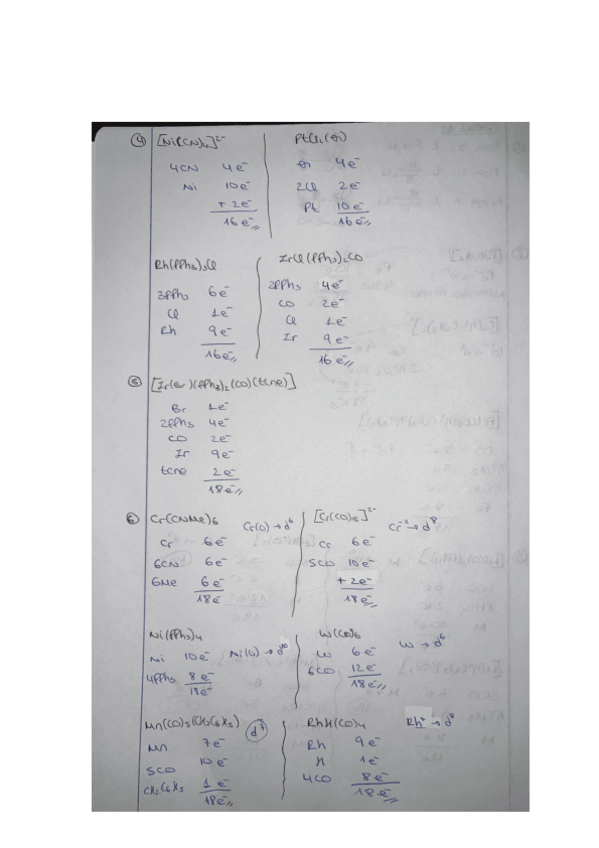 4) [Ni(CN)4]2-
4CN 4e-
Ni 10e-
+ 2e-
16e-
PtCl2(en)
en 4e-
2Cl 2e-
Pt 10e-
16e-
Rh(PPh3)3Cl
3PPh3 6e-
Cl 1e-
Rh 9e-
16e-
IrCl(PPh3)2CO
2PPh3 4e-
CO 2e-
Cl 1e-
Ir 9e-
16e-
5) [Ir(Br)(PPh3)2(CO)(tcne)]
Br 1e-
2PPh3 4e-
CO 2e-
Ir 9e-
tcne 2e-
18e-
6) Cr(CNMe)6
Cr(0) → d6
Cr 6e-
6CN 6e-
6Me 6e-
18e-
[Cr(CO)5]2-
Cr-2 → d8
Cr 6e-
5CO 10e-
+ 2e-
18e-
Ni(PPh3)4
Ni 10e- Ni(0) → d10
4PPh3 8e-
18e-
W(CO)6
W 6e- W → d6
6CO 12e-
18e-
Mn(CO)5(CH2C6H5) d7
Mn 7e-
5CO 10e-
CH2C6H5 1e-
18e-
RhH(CO)4 Rh+ → d8
Rh 9e-
H 1e-
4CO 8e-
18e-